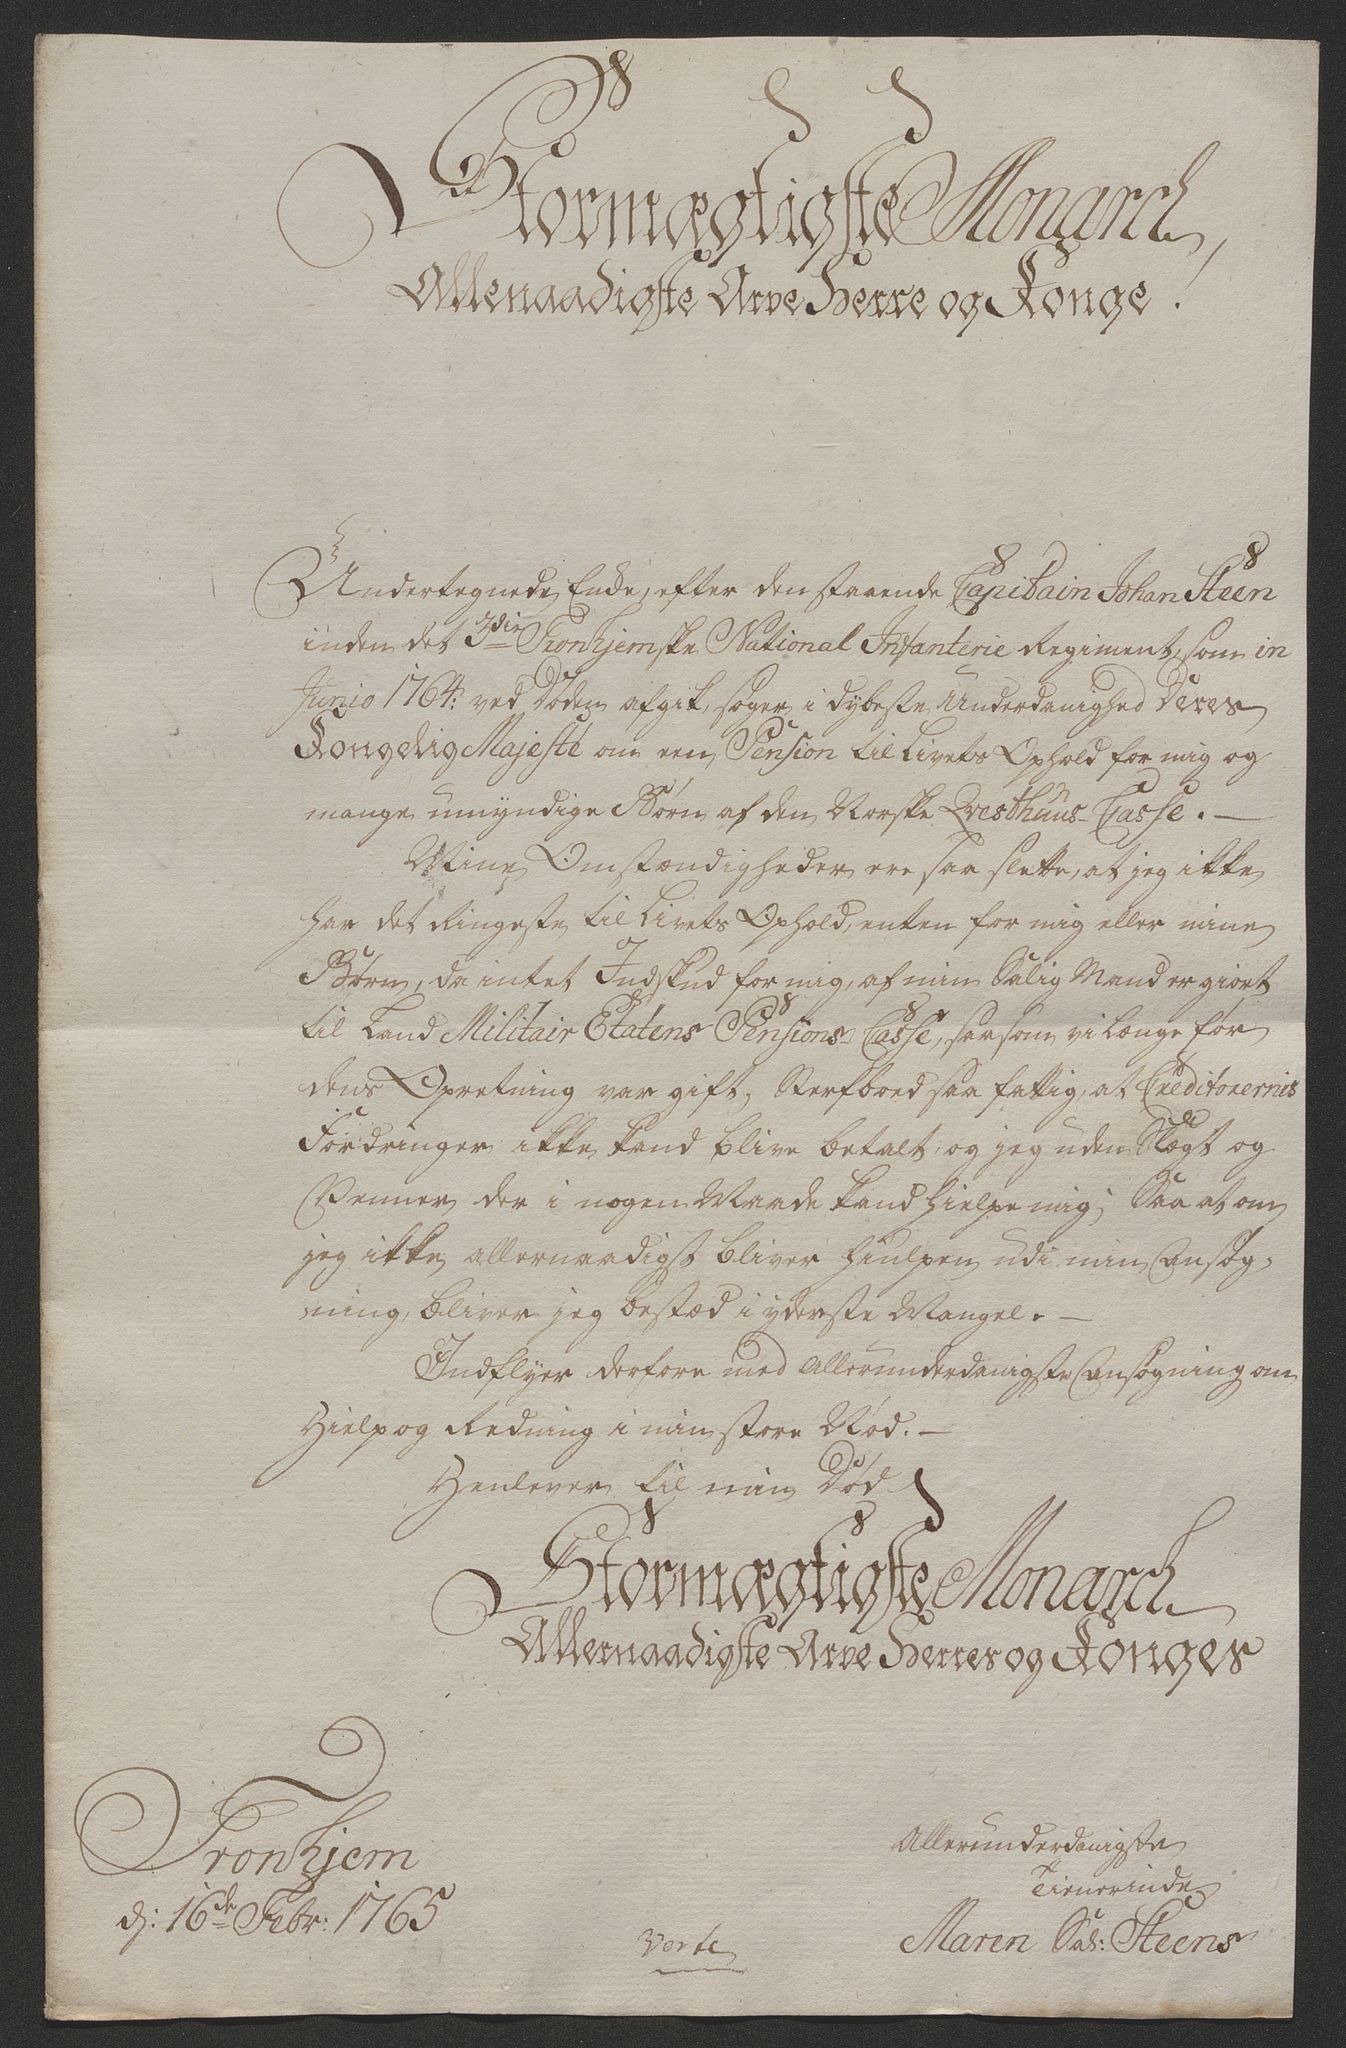 Stormægtigste Monarch,
Allenaadigste Arve Herre og Konge!
Undertegnede Enke, efter den staaende Capitain Johan Steen
inden det 3die Tronhjemske National Infanterie Regiment, som in
Junio 1764: ved Døden afgik, søger i dybeste Underdanighed Deres
Kongelig Majestè om een Pension til Livets Ophold for mig og
mange umyndige Børn af den Norske Qvesthuus-Casse. —
Mine Omstændigheder ere saa slette, at jeg ikke
har det Ringeste til Livets Ophold, enten for mig eller mine
Børn, da intet Indskud for mig, af min Salig Mand er giort
til Land Militair Etatens Pensions-Casse, saasom vi længe før
dens Opretning var gift, Sterfboed saa fattig, at Creditorernis
Fordringer ikke kand blive betalt, og jeg uden Slægt og
Venner der i nogen Maade kand hielpe mig; Saa at om
jeg ikke allernaadigst bliver hiulpen udi min Ansøg-
ning, bliver jeg bestæd i yderste Mangel. —
Indflyer derfore med Allerunderdanigste Ansøgning om
Hielp og Redning i min store Nød. —
Henlever til min Død
Stormægtigste Monarch
Allernaadigste Arve Herres og Konges
Tronhjem
d: 16de Febr: 1765
Allerunderdanigste
Tienerinde
Maren Sal: Steens
Verte